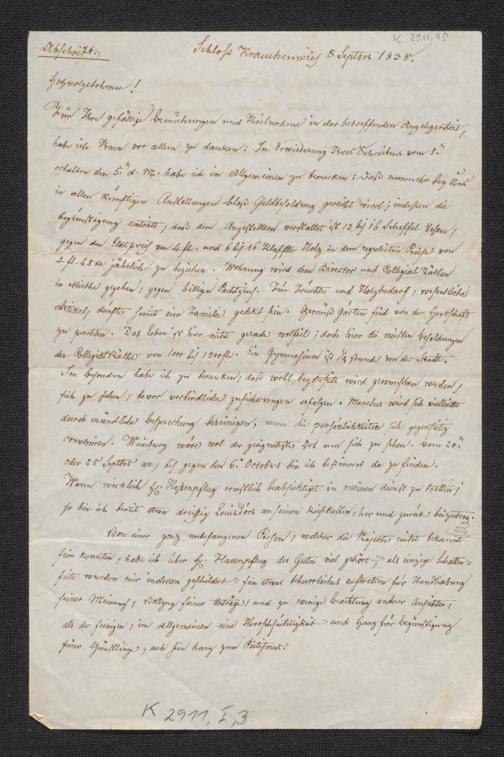 K 2911,95
Abschrift.
Schloss Krauchenwies 8 Septbr 1838.
Hochwolgeborner!
Für Ihre gefällige Bemühungen und Theilnahme in der betreffenden Angelegenheit,
habe ich Ihnen vor allem zu danken; In Erwiederung Ihres Schreibens vom 1.
erhalten den 5. d. M. habe ich im Allgemeinen zu bemerken; daß nunmehr bey
in allen künftigen Anstellungen bloß Geldbesoldung gereicht wird; indessen die
begünstigung eintritt, daß den Angestellten verstattet ist 12 bis 16 Scheffel
gegen den Etatpreis von 4 fl. und 6 bis 16 Klafter Holz in dem regulirten Preise von
4 fl. 45 x jährlich zu beziehen. Wohnung wird dem Director und Collegial Räthen
in Miethe gegeben, gegen billigen Pachtzins. Für Früchte und Holzbedarf, wesentliche
Artikel, dürfte somit eine Familie gedekt sein. Gemüs Garten sind von der Herrschaft
zu pachten. Das Leben ist hier nicht gerade wolfeil; doch hier die meisten Besoldungen
der Collegial Räthe von 1000 bis 1200 fl. Ein Gymnasium ist 1/4 stunde von der Stadt.
Im besondern habe ich zu bemerken, daß wohl beyderseits wird gewünschen werden,
sich zu sehen, bevor verbindliche zusicherungen erfolgen. Manches wird sich vielleicht
durch mündliche besprechung bereinigen, wenn die persönlichkeiten sich gegenseitig
convenieren. Weinburg wäre wol der geeignetste Ort um sich zu sehen. vom 20.
oder 25 Septbr an, bis gegen den 6. Octobers bin ich bestimmt da zu finden.
Wenn wirklich H: Hassenpflug ernstlich beabsichtiget in meinen dienst zu tretten,
so bin ich bereit etwa dreißig Louisdors an seinen Reisekosten, her und zurück beizutragen.
Von einer ganz unbefangenen Person, welcher die Projecte nicht bekannt
sein konnten, habe ich über H: Hassenpflug des Guten viel gehört; als einzige Schatten-
seite wurden mir indessen geschildert ein etwas beharrliches auftretten für Handhabung
seiner Meinung, seiner und zu wenige Beachtung anderer Ansichten,
als der seinigen, im allgemeinen eine Herrschsüchtigkeit und Hang für begünstigung
seiner Günstlinge, auch sein hang zum Pietismus.
K 2911, I, 3